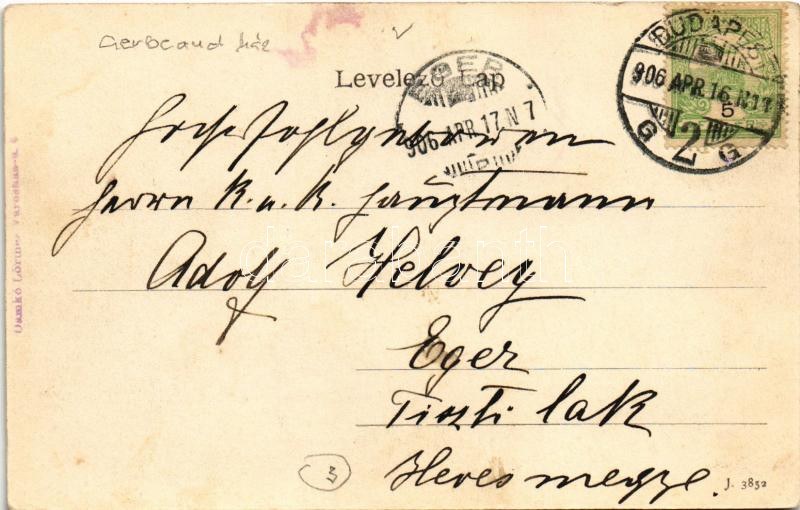 Gerbeaud ház
Levelező Lap
BUDAPEST
906 APR.16.N11
5
G 2 G
EGER
906 APR.17.N 7
Hochwohlgeboren
Herrn K. u. K. Hauptmann
Adolf Helvey
Eger
Tiszti lak
Hevesmegye.
3
J. 3852
darabanth